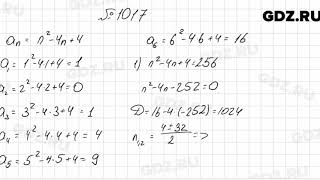 GDZ.RU
№ 1017
aₙ = n²-4n+4
a₁ = 1²-4·1+4=1
a₂ = 2²-4·2+4=0
a₃ = 3²-4·3+4=1
a₄ = 4²-4·4+4=4
a₅ = 5²-4·5+4=9
a₆ = 6²-4·6+4=16
1) n²-4n+4=256
n²-4n-252=0
D=16-4·(-252)=1024
n₁,₂ = (4±32)/2 =>
GDZ.RU